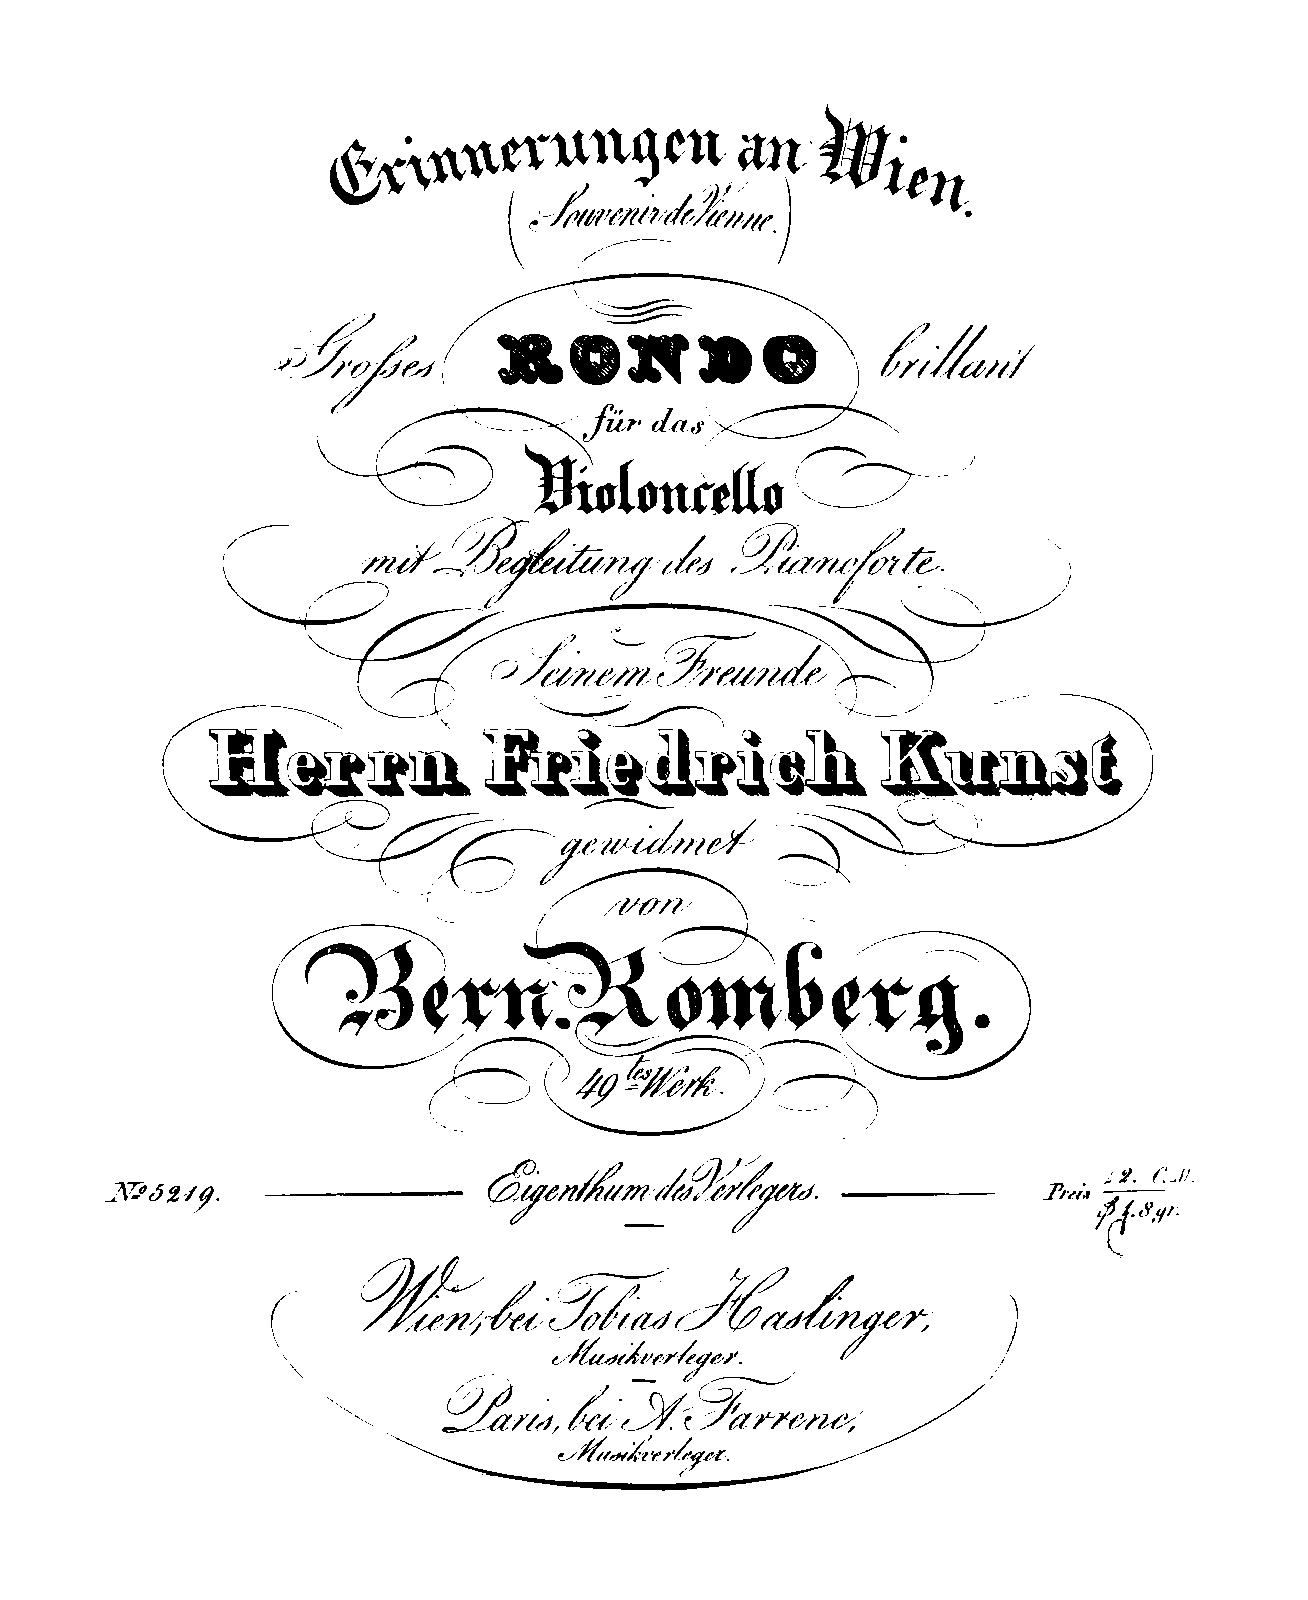 Erinnerungen an Wien.
(Souvenir de Vienne.)
Großes RONDO brillant
für das
Violoncello
mit Begleitung des Pianoforte.
Seinem Freunde
Herrn Friedrich Kunst
gewidmet
von
Bern. Romberg.
49tes Werk.
No 5219. Eigenthum des Verlegers. Preis 2. C.M.
8 gr.
Wien, bei Tobias Haslinger,
Musikverleger.
Paris, bei A. Farrenc,
Musikverleger.